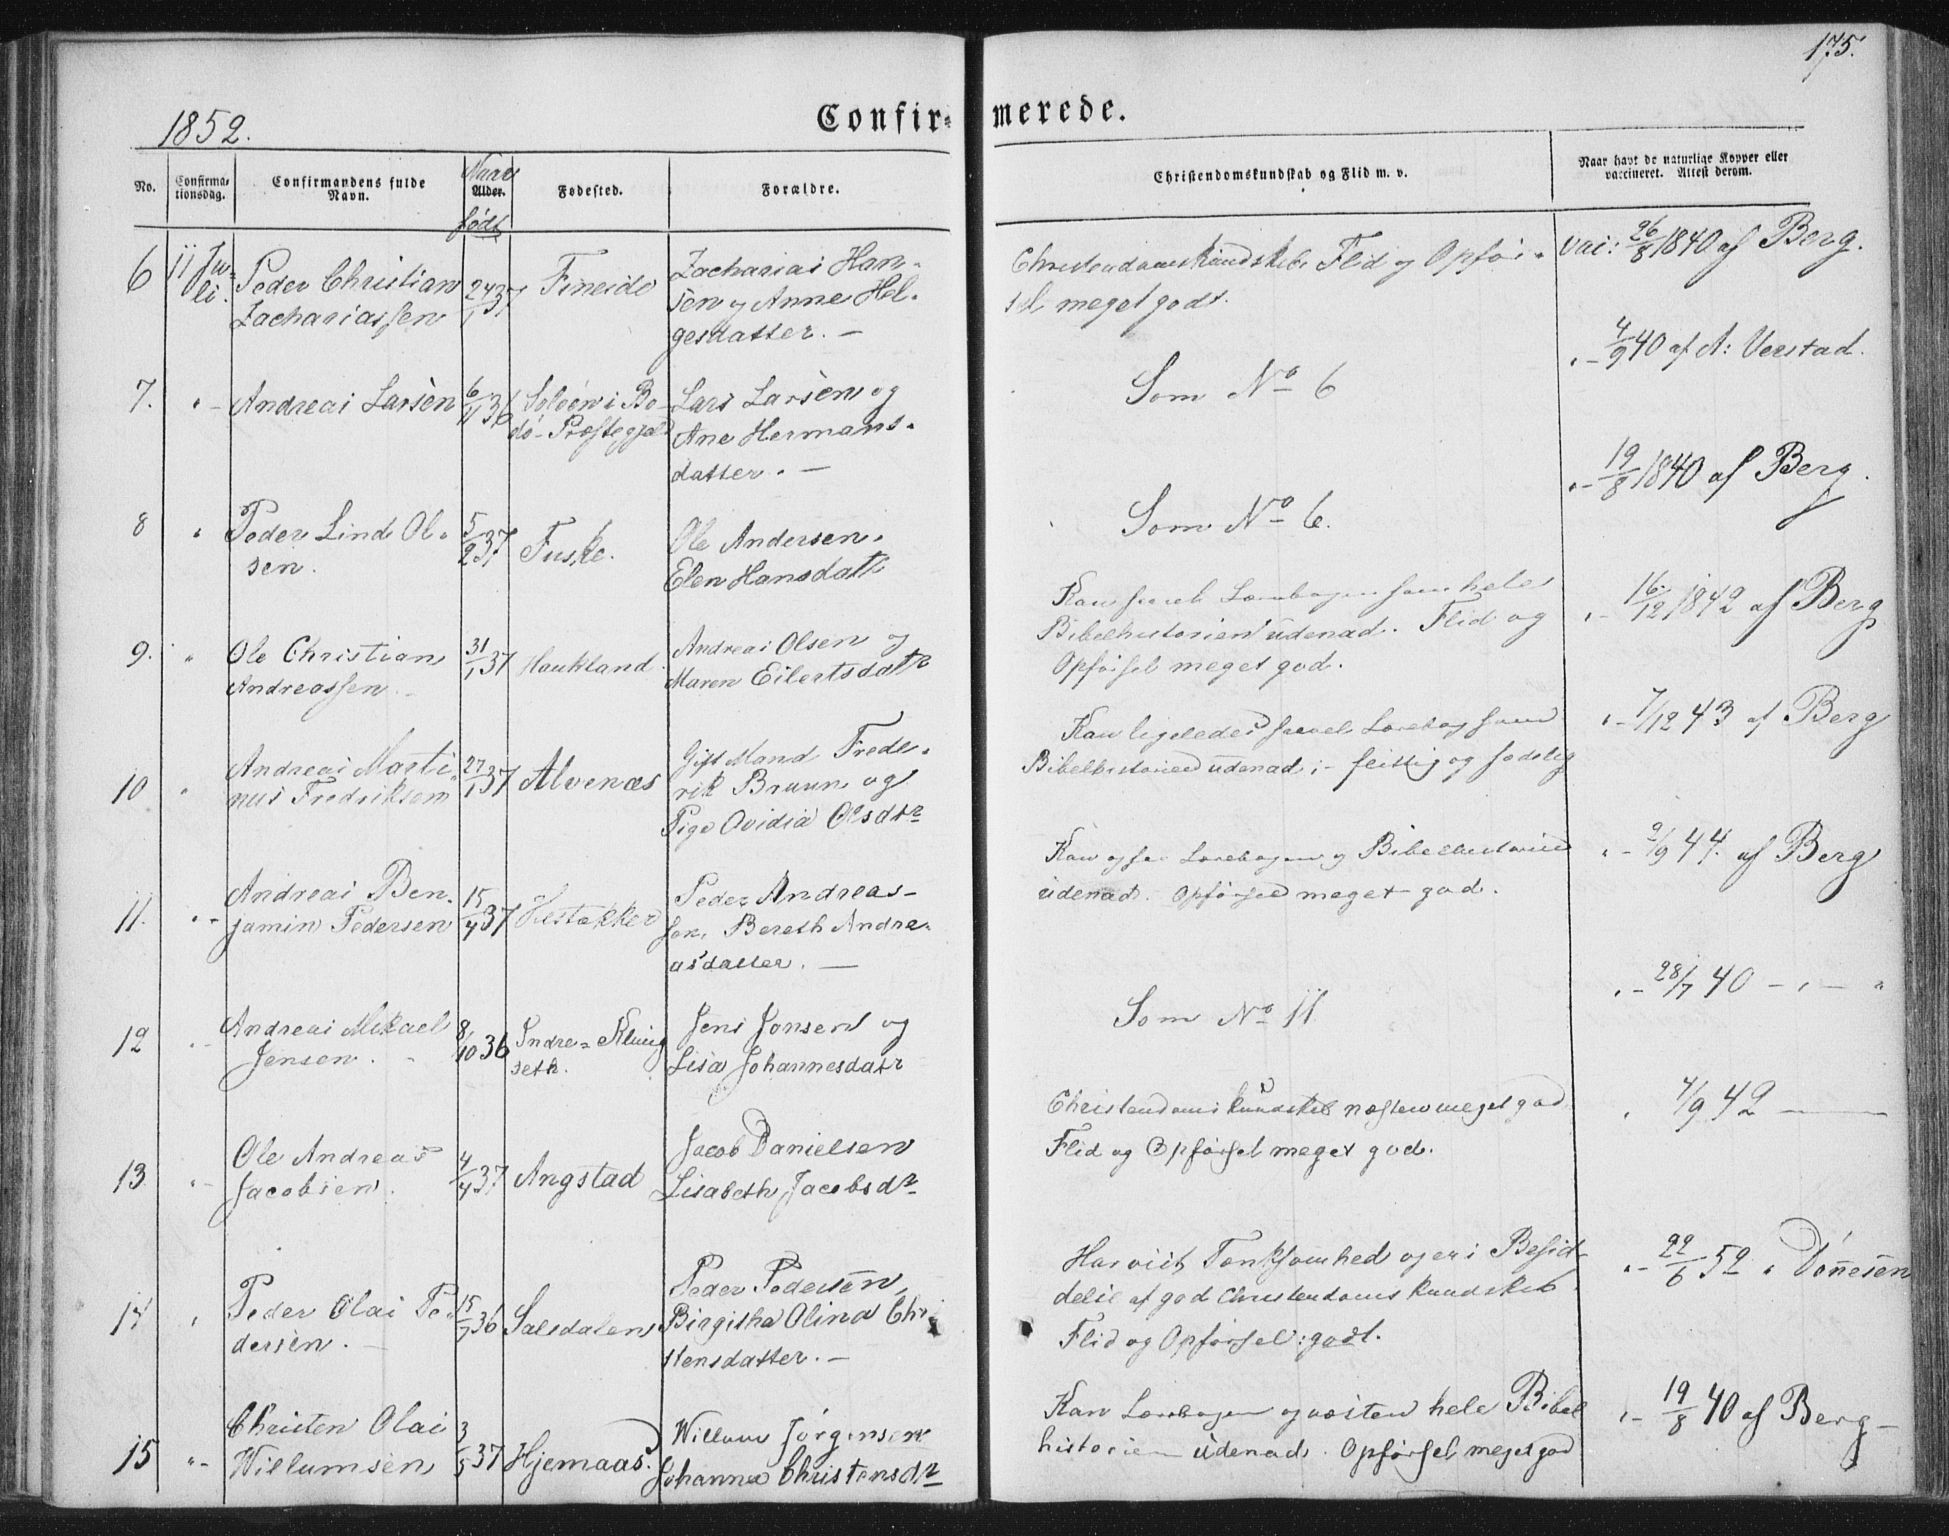 175.
1852.
Confir- merede.
No.
Confirma-
tionsdag.
Confirmandens fulde
Navn.
Naar
Alder.
født
Fødested.
Forældre.
Christendomskundskab og Flid m. v.
Naar havt de naturlige Kopper eller
vaccineret. Attest derom.
6 11 Ju-
li. Peder Christian
Zachariassen 24/1 37 Fineide Zacharias Han-
sen og Anne Hel-
gesdatter. —
Christendomskundskab, Flid og Opför-
sel meget godt.
vac: 26/8 1840 af Berg.
7. " - Andreas Larsen 6/11 36 Soløen i Bo-
dö- Præstegjeld Lars Larsen og
Ane Hermans-
datter. —
Som No 6
" - 4/9 40 af A: Verstad.
8 " Peder Lind Ol-
sen. 5/2 37 Fuske. Ole Andersen.
Elen Hansdatr
Som No 6.
" - 19/8 1840 af Berg.
9. " Ole Christian
Andreassen. 31/1 37 Haukland. Andreas Olsen og
Maren Eilertsdatr
Kan saavel Lærebogen som hele
Bibelhistorien udenad. Flid og
Opförsel meget god.
" - 16/12 1842 af Berg
10 " Andreas Marti-
nus Fredriksen 27/1 37 Alvenæs Gift Mand Frede-
rik Bruun og
Pige Ovidia Olsdtr
Kan ligeledes saavel Lærebog som
Bibelhistorien udenad; - flittig og sædelig
" - 7/12 43 af Berg
11. " - Andreas Ben-
jamin Pedersen 15/4 37 Peder Andreas-
sen, Bereth Andre-
asdatter. —
Kan ogsaa Lærebogen og Bibelhistorien
udenad. Opförsel meget god.
" - 2/9 44. af Berg
12 " - Andreas Mikael
Jensen. 8/10 36 Indre- Klung
seth. Jens Jonsen og
Lisa Johannesdatr
Som No 11.
" - 28/7 40 - " - "
13 " - Ole Andreas
Jacobsen. 4/4 37 Angstad Jacob Danielsen
Lisabeth Jacobsdr
Christendomskundskab næsten meget god
Flid og Opförsel meget god.
" 4/9 42 ———
14 " Peder Olai Pe-
dersen. — 15/7 36 Salsdalen Peder Pedersen,
Birgitha Olina Chri-
stensdatter. —
Har viist Tænksomhed og er i Besid-
delse af god Christendoms kundskab
Flid og Opförsel: godt.
" - 22/6 52 " Dönnesen
15 " - Christen Olai
Willumsen 3/5 37 Hjemaas. Willum Jörgensen
Johanna Christensdr
Kan Lærebogen og næsten hele Bibel
historien udenad. Opförsel meget god
" - 19/8 40 af Berg -